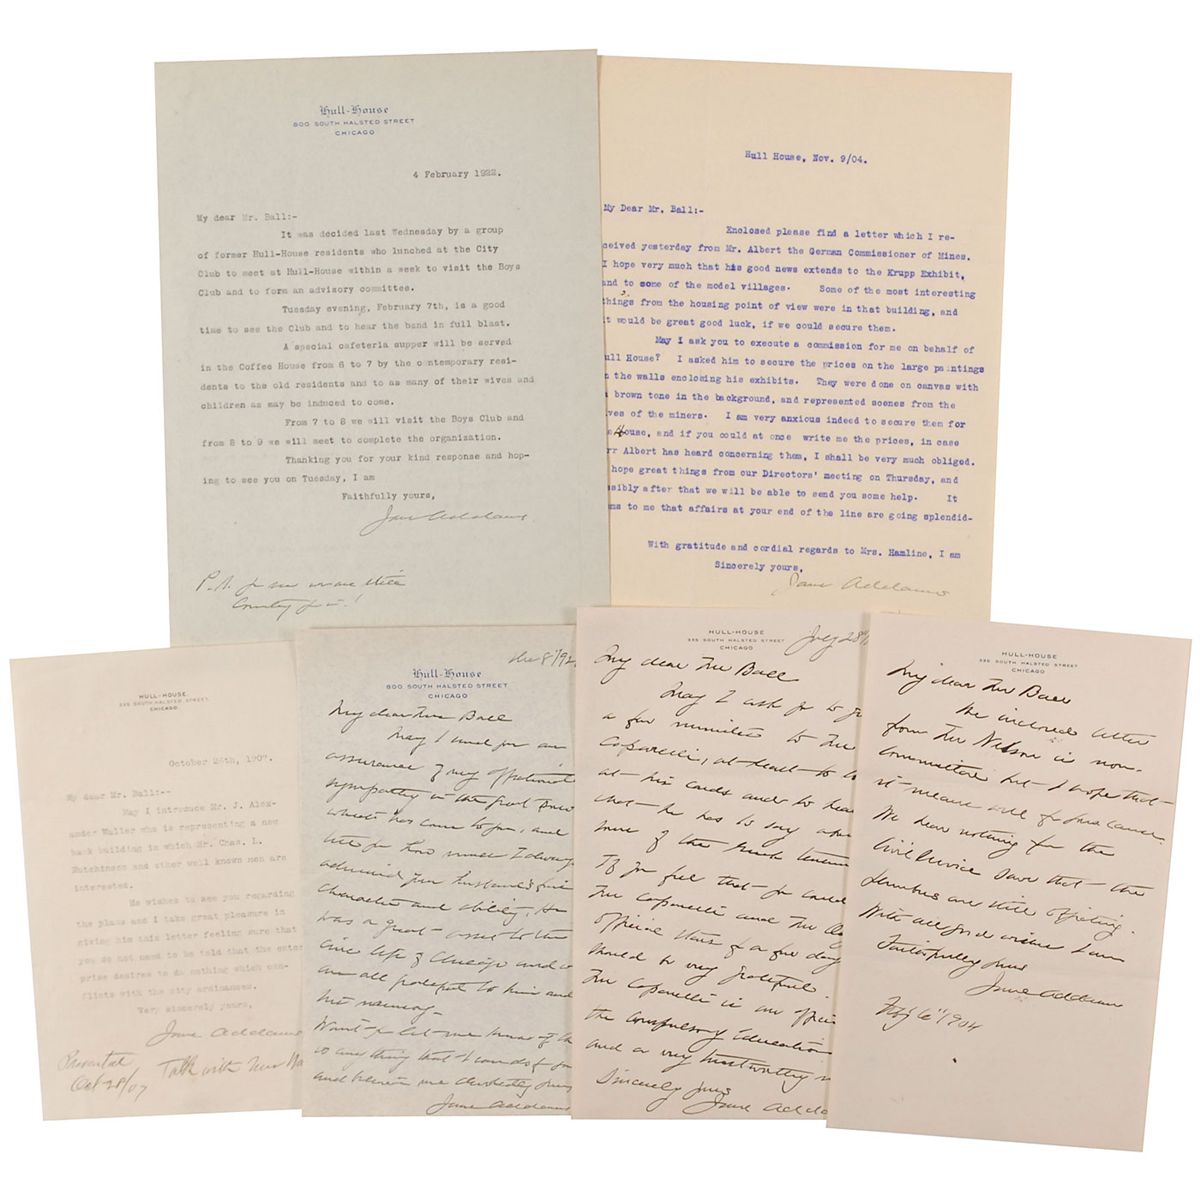 Hull-House
800 SOUTH HALSTED STREET
CHICAGO
4 February 1922.
My dear Mr. Ball:-
It was decided last Wednesday by a group
of former Hull-House residents who lunched at the City
Club to meet at Hull-House within a week to visit the Boys
Club and to form an advisory committee.
Tuesday evening, February 7th, is a good
time to see the Club and to hear the band in full blast.
A special cafeteria supper will be served
in the Coffee House from 6 to 7 by the contemporary resi-
dents to the old residents and to as many of their wives and
children as may be induced to come.
From 7 to 8 we will visit the Boys Club and
from 8 to 9 we will meet to complete the organization.
Thanking you for your kind response and hop-
ing to see you on Tuesday, I am
Faithfully yours,
Jane Addams
P.S.
Hull House, Nov. 9/04.
My Dear Mr. Ball:-
Enclosed please find a letter which I re-
ceived yesterday from Mr. Albert the German Commissioner of Mines.
I hope very much that his good news extends to the Krupp Exhibit,
and to some of the model villages. Some of the most interesting
things from the housing point of view were in that building, and
it would be great good luck, if we could secure them.
May I ask you to execute a commission for me on behalf of
ull House? I asked him to secure the prices on the large paintings
n the walls enclosing his exhibits. They were done on canvas with
brown tone in the background, and represented scenes from the
ves of the miners. I am very anxious indeed to secure them for
e House, and if you could at once write me the prices, in case
rr Albert has heard concerning them, I shall be very much obliged.
hope great things from our Directors' meeting on Thursday, and
sibly after that we will be able to send you some help. It
ms to me that affairs at your end of the line are going splendid-
With gratitude and cordial regards to Mrs. Hamline, I am
Sincerely yours,
Jane Addams
HULL-HOUSE
335 SOUTH HALSTED STREET
CHICAGO
October 26th, 1907.
My dear Mr. Ball:--
May I introduce Mr. J. Alex-
ander Waller who is representing a new
bank building in which Mr. Chas. L.
Hutchinson and other well known men are
interested.
He wishes to see you regarding
the plans and I take great pleasure in
giving him this letter feeling sure that
you do not need to be told that the enter
prize desires to do nothing which con-
flicts with the city ordinances.
Very sincerely yours,
Jane Addams
Presented
Oct 28/07
Talk with
Dec 8
Hull-House
800 SOUTH HALSTED STREET
CHICAGO
My dear Mrs Ball
May I send you an
assurance of my affectionate
sympathy in the great sorrow
which has come to you, and
tell you how much I always
admired your husband's fine
character and ability. He
was a great asset to the
civic life of Chicago and we
are all grateful to him and
his memory.
Won't you let me know of the
anything that I can do for you
and believe me devotedly yours
Jane Addams
HULL-HOUSE
335 SOUTH HALSTED STREET
CHICAGO
July 28
My dear Mr Ball
May I ask you to give
a few minutes to Mr
Caparelli, at least to look
at his cards and to hear
that he has to say about
some of the tenement
If you feel that you could
Mr Caparelli and
official stars for a few days
should be very grateful.
Mr Caparelli is an officer
the Compulsory Education
and a very trustworthy
Sincerely yours
Jane Addams
HULL-HOUSE
335 SOUTH HALSTED STREET
CHICAGO
My dear Mr Ball
The enclosed letter
from Mr Nelson is non-
committal but I hope that
it means well for our cause.
We hear nothing for the
Civil Service save that the
are still
With all good wishes I am
Faithfully yours
Jane Addams
1904